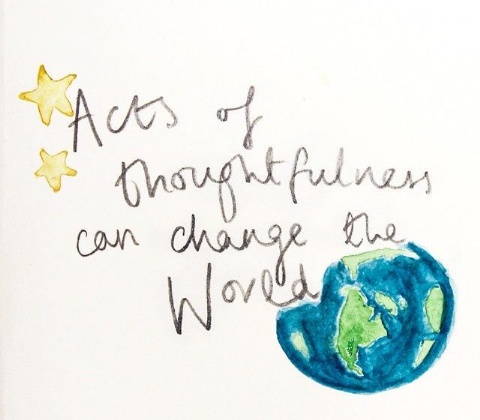 Acts of
thoughtfulness
can change the
World